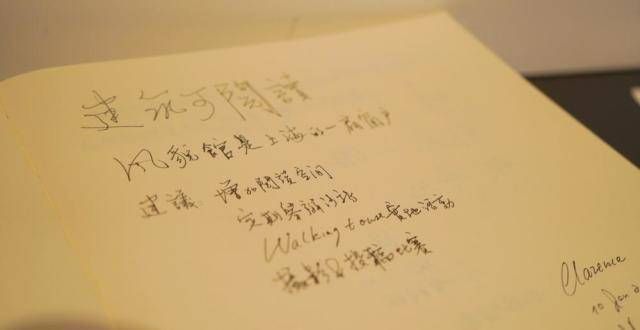 建筑可閱讀
风貌館是上海的一扇窗戶
建議 增加閱讀空間
定期
Walking tour 實地活動
攝影&投稿比賽
Clarence
10 Jan